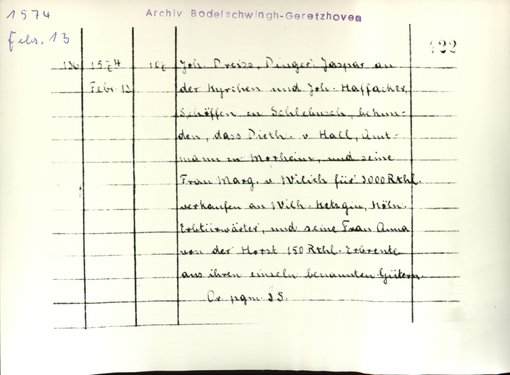 1574
Febr. 13
Archiv Bodelschwingh-Geretzhoven
122
136 1574 Febr. 13
Joh. Preiss, Dinger, Jaspar an
der Kyrchen und Joh. Haffacker,
Schöffen zu Schlebusch, bekun-
den, dass Dieth. v. Hall, Amt-
mann zu Monheim, und seine
Frau Marg. v. Wilich für 3000 Rthl.
verkaufen an Wilh. Ketzgin, Köln.
Erbtürwärter, und seine Frau Anna
von der Horst 150 Rthl. Erbrente
aus ihren einzeln benannten Gütern.
Or. pgm. 2 S.